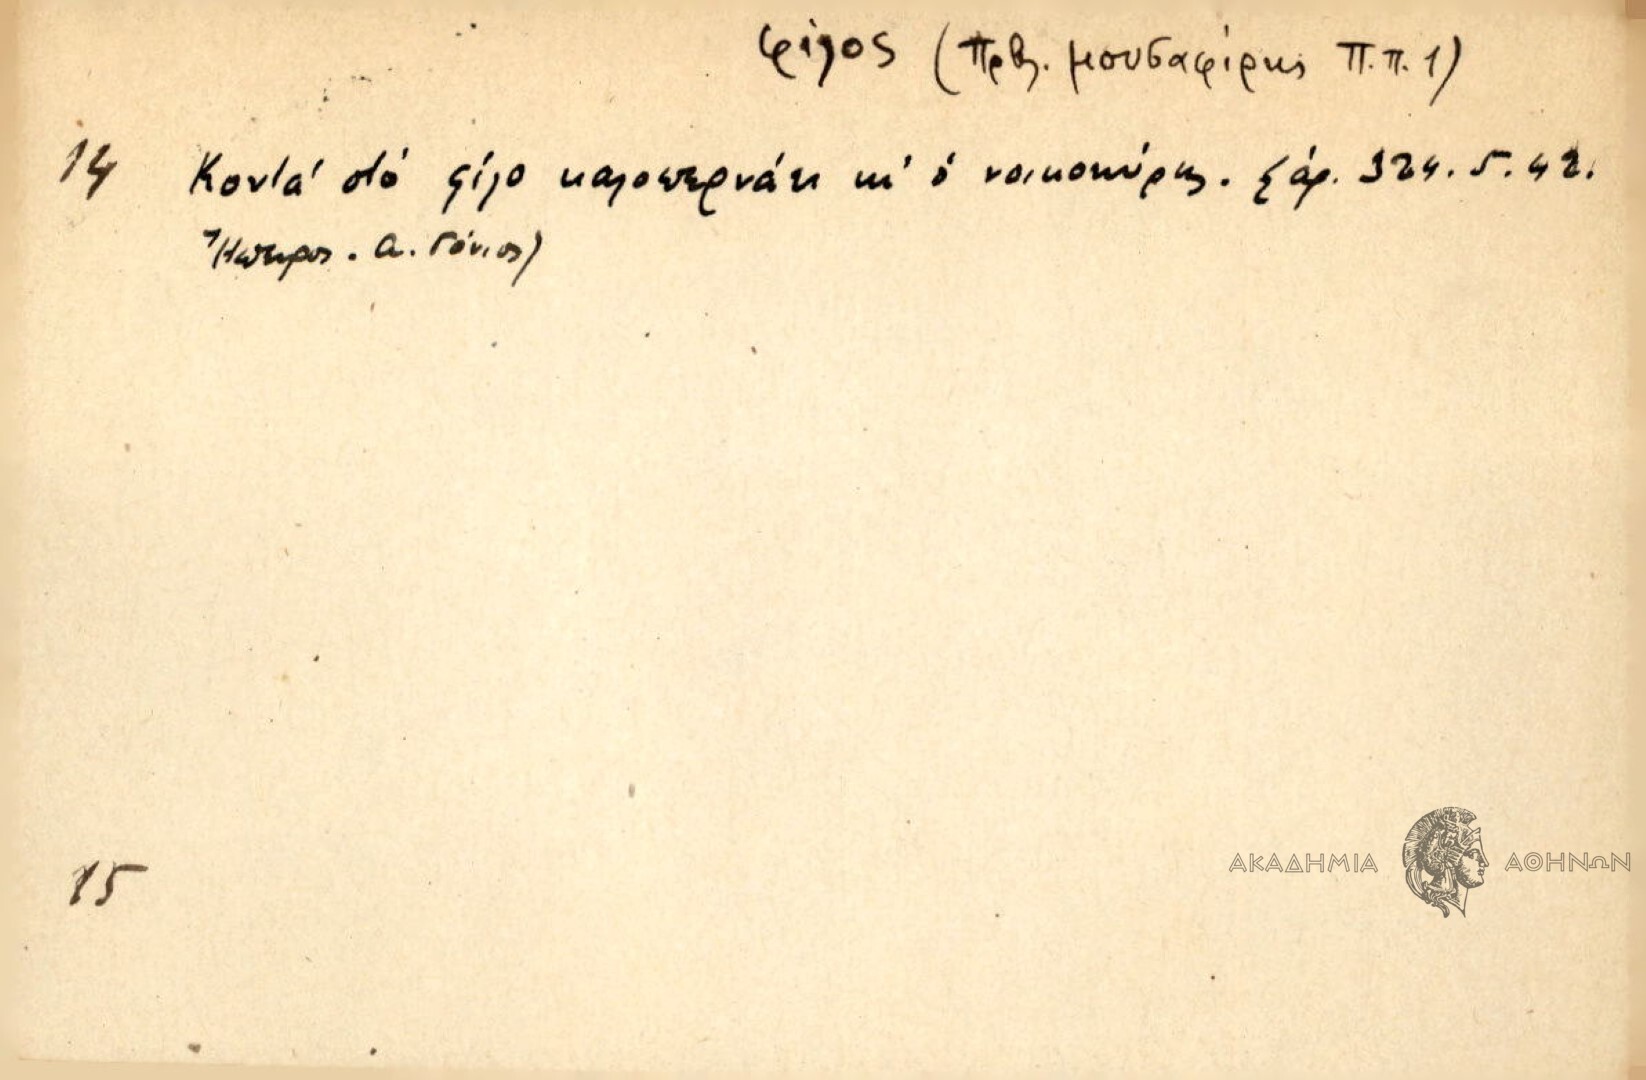 φίλος (Πρβλ. μουσαφίρης Π.π. 1)
14 Κοντά στό φίλο καλοπερνάει κι' ὁ νοικοκύρης. ξ ἀρ. 324. 5. 42.
Ἤπειρος. Α. Γόνιος)
15
ΑΚΑΔΗΜΙΑ ΑΘΗΝΩΝ